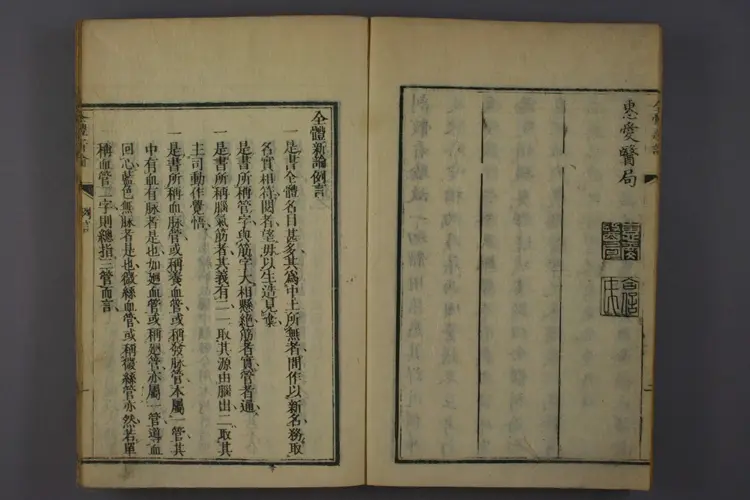 惠愛醫局
全體新論例言
一是書全體名目甚多其爲中土所無者間作以新名務取
名實相符閱者望毋以生造見嗤
是書所稱管字與筋字大相懸絕筋者實管者通
一是書所稱腦氣筋者其義有二一取其源由腦出二取其
主司動作覺悟
一是書所稱血脉管或稱養血管或稱發脉管本屬一管其
中有血有脉者是也如廻血管或稱廻管亦屬一管導血
回心藍色無脉者是也微絲血管或稱微絲管亦然若單
稱血管二字則總指三管而言